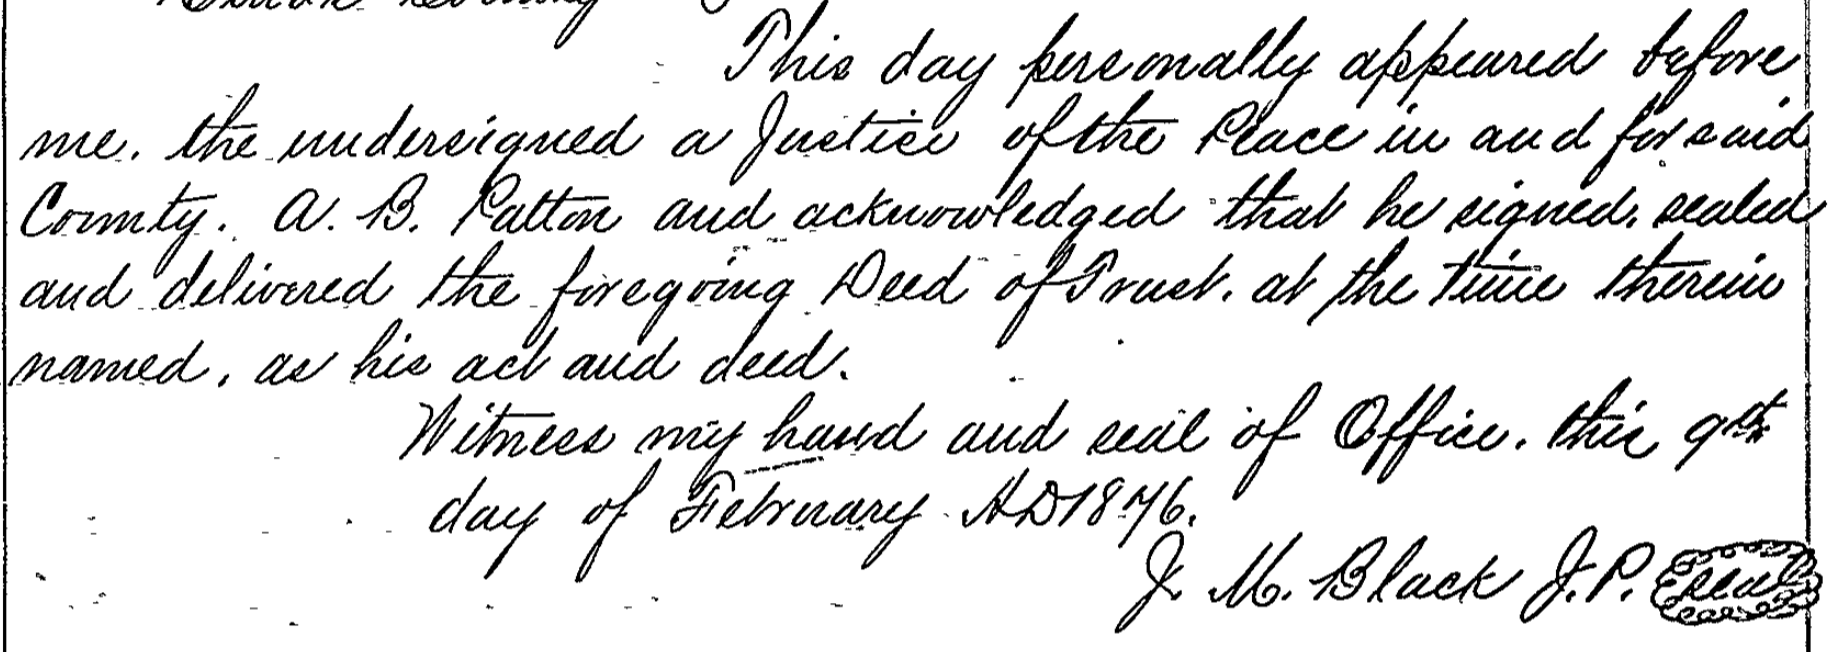 County
This day personally appeared before
me. the undersigned a Justice of the Peace in and for said
County. A. B. Patton and acknowledged that he signed, sealed
and delivered the foregoing Deed of Trust. at the time therein
named, as his act and deed.
Witness my hand and seal of Office. this 9th
day of February AD 1876.
J. M. Black J.P. Seal